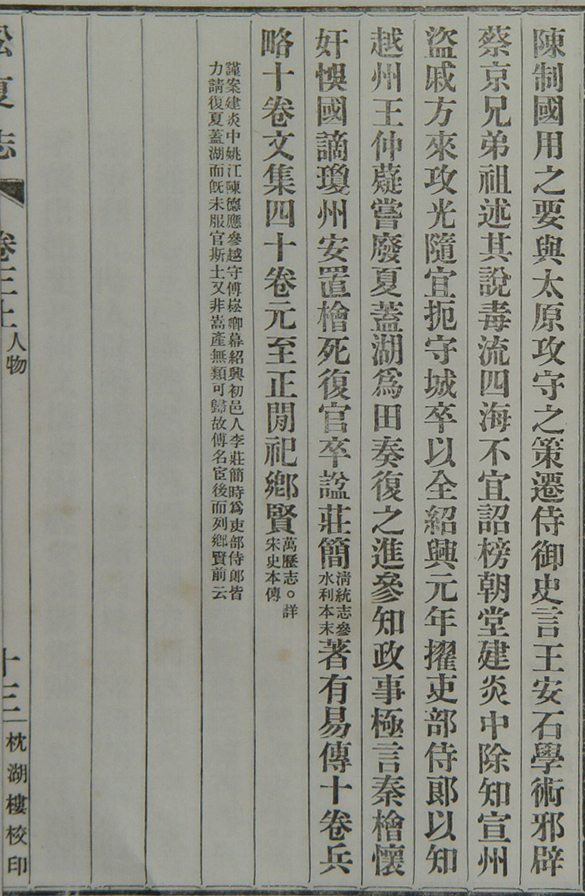 陳制國用之要與太原攻守之策遷侍御史言王安石學術邪辟
蔡京兄弟祖述其說毒流四海不宜詔榜朝堂建炎中除知宣州
盜戚方來攻光隨宜扼守城卒以全紹興元年擢吏部侍郎以知
越州王仲薿嘗廢夏蓋湖爲田奏復之進參知政事極言秦檜懷
奸悞國謫瓊州安置檜死復官卒諡莊簡淸統志參水利本末著有易傳十卷兵
略十卷文集四十卷元至正閒祀鄉賢萬歷志○詳宋史本傳
謹案建炎中姚江陳德應參越守傅崧卿幕紹興初邑人李莊簡時爲吏部侍郎皆
力請復夏蓋湖而旣未服官斯土又非嵩產無類可歸故傅名宦後而列鄉賢前云
松夏志
卷三上
人物
十三
枕湖樓校印